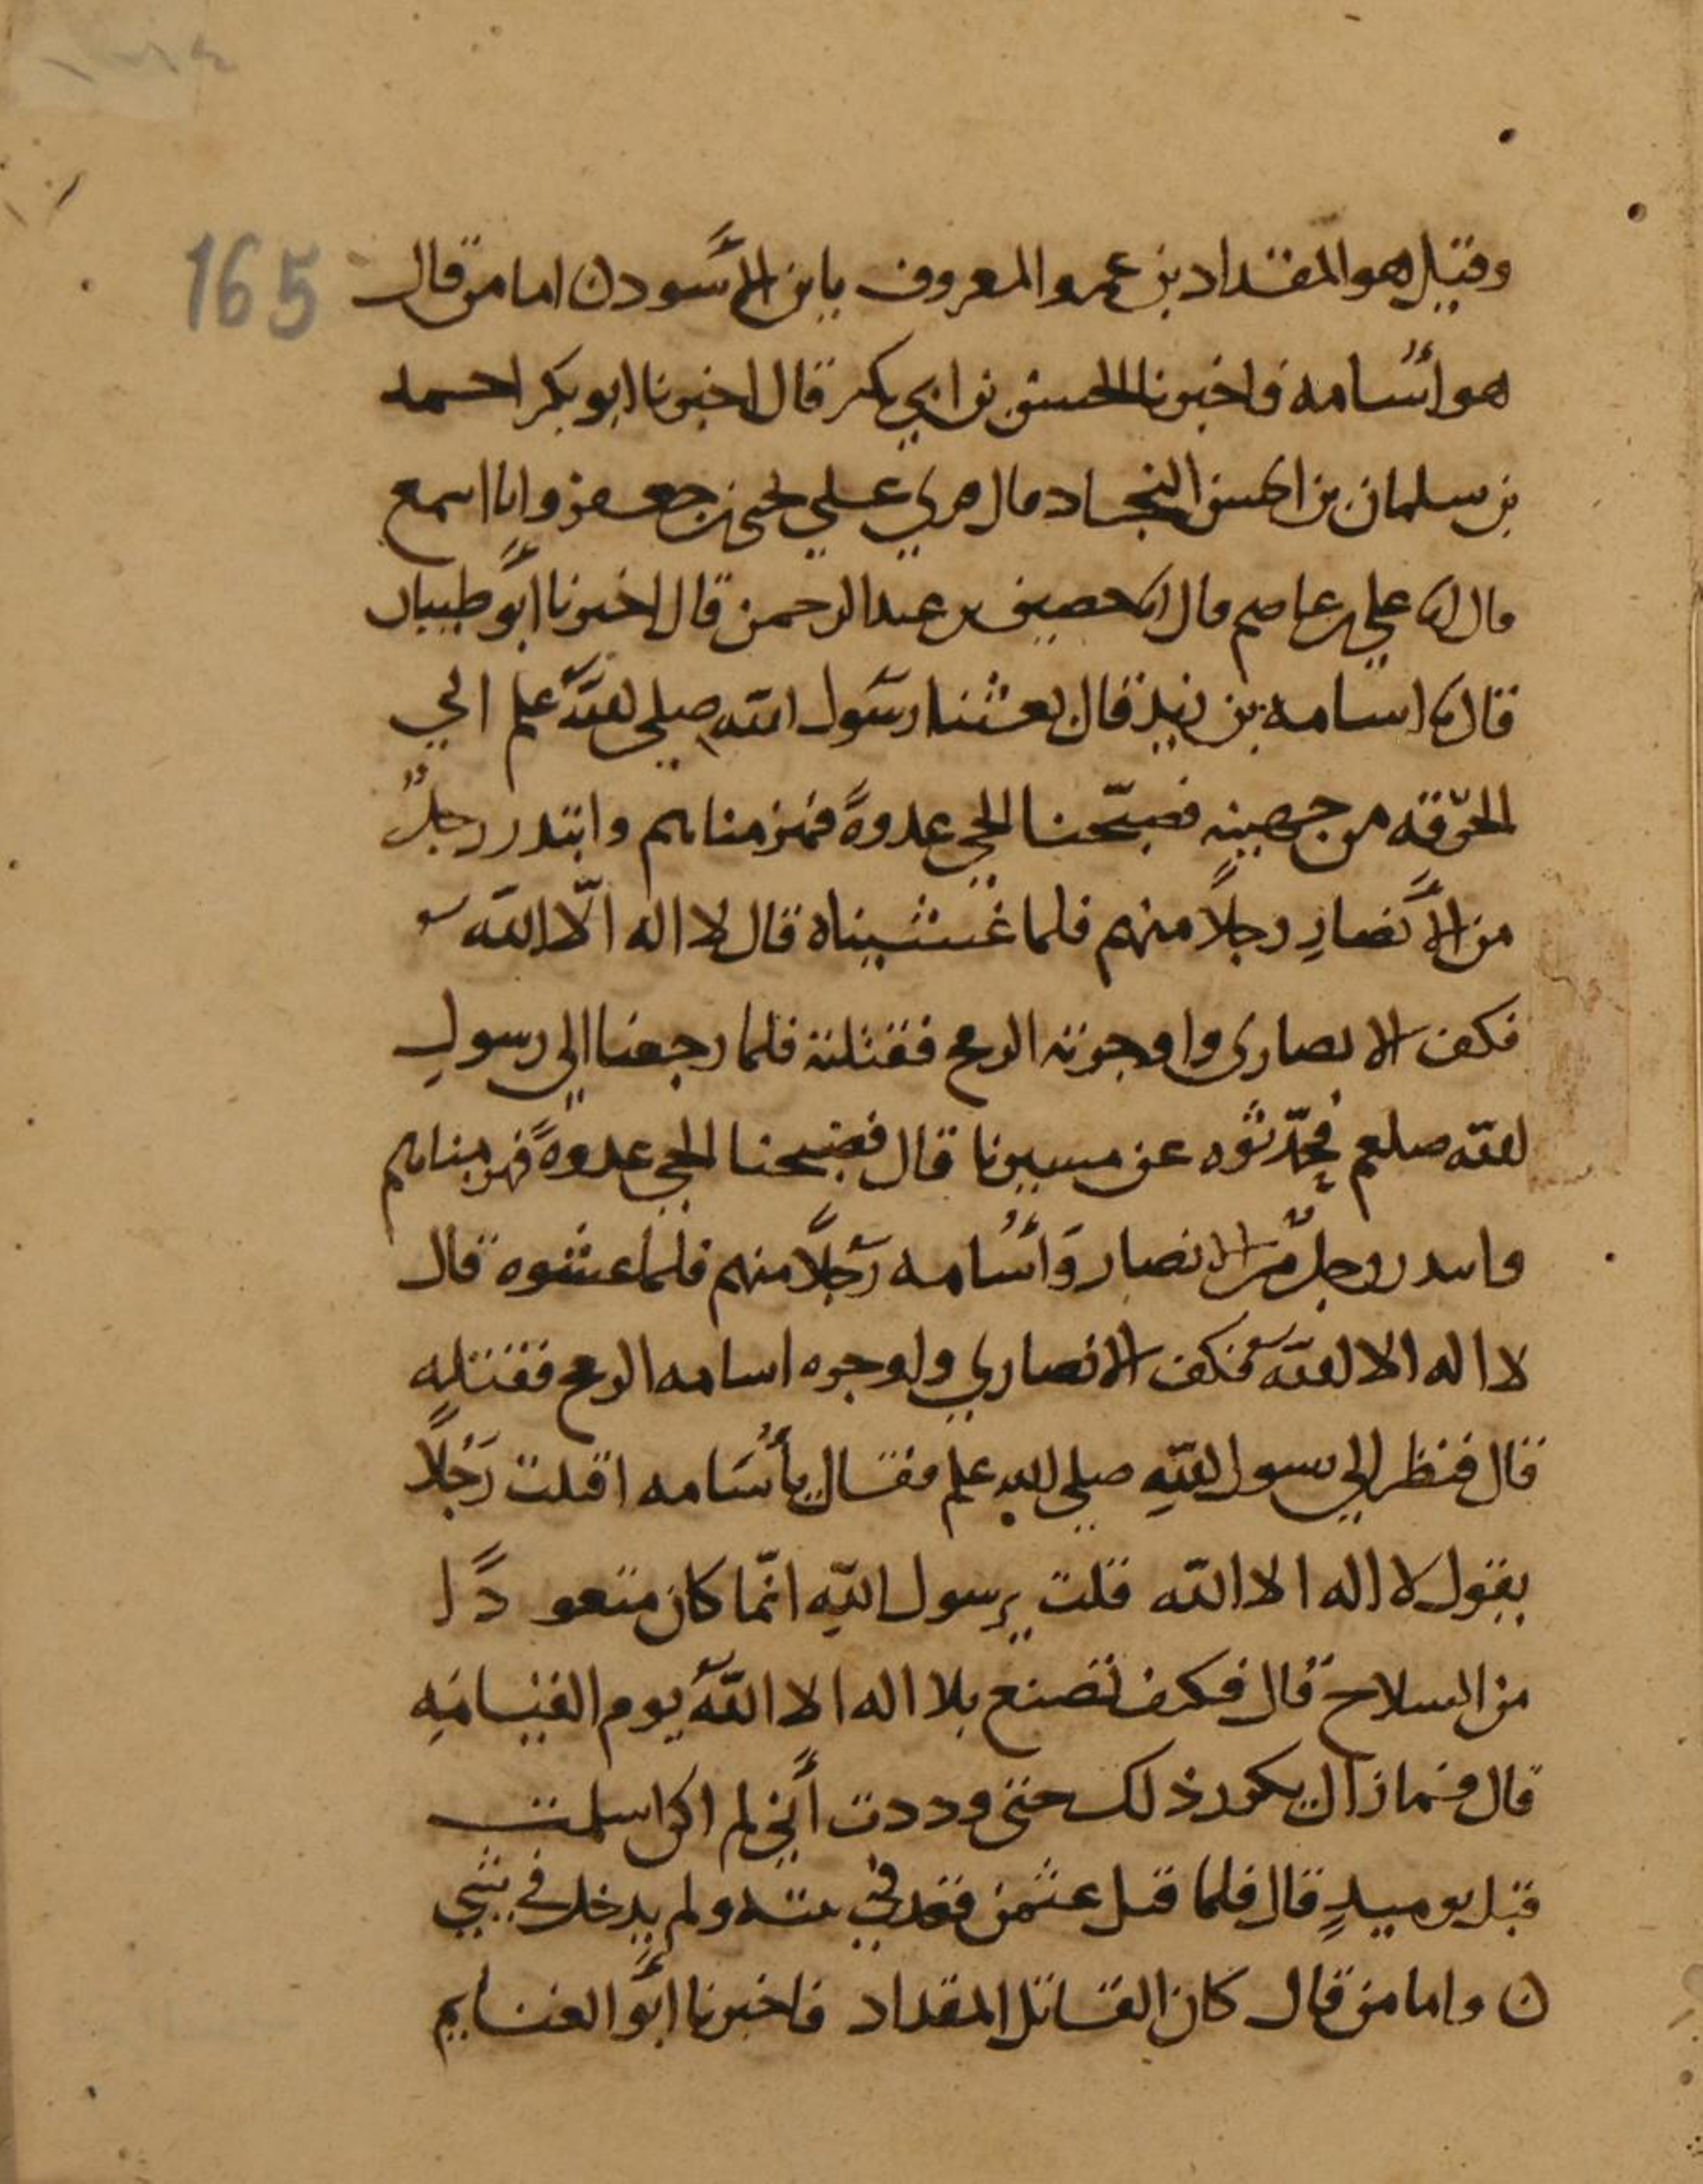 165
وقيل هو المقداد بن عمرو المعروف بابن الأسود ن اما من قال
هو أسامه فاخبرنا الحسن بن ابي بكر قال اخبرنا ابو بكر احمد
بن سلمان بن الحسن النجاد قال قري علي يحيى بن جعفر وانا اسمع
قال انا علي بن عاصم قال انا حصين بن عبد الرحمن قال اخبرنا ابو ظبيان
قال نا اسامه بن زيد قال بعثنا رسول الله صلي الله علم الي
الحرقه من جهينه فصبّحنا الحي غدوةً فهزمناهم وابتدر رجلٌ
من الأنصارِ رجلاً منهم فلما غشيناه قال لا اله الّا الله
فكف الانصاري واوجرته الرمح فقتلته فلما رجعنا الي رسول
الله صلعم فحدّثوه عن مسيرنا قال فصبحنا الحي غدوةً فهزمناهم
وابتدر رجلٌ من الانصار وأسامه رجلاً منهم فلما غشوه قال
لا اله الا الله فكف الانصاري واوجره اسامه الرمح فقتله
قال فنظر الي رسول الله صلي الله علم فقال يأسامه اقتلت رجلاً
يقول لا اله الا الله قلت يرسول اللهِ انّما كان متعودًا
من السلاح قال فكيف تصنع بلا اله الا الله يوم القيامه
قال فما زال يكرر ذلك حتى وددت أني لم اكن اسلمت
قبل يوميذٍ قال فلما قتل عثمن فقعد في بيته ولم يدخل في شي
ن واما من قال كان القاتل المقداد فاخبرنا ابو الغنايم